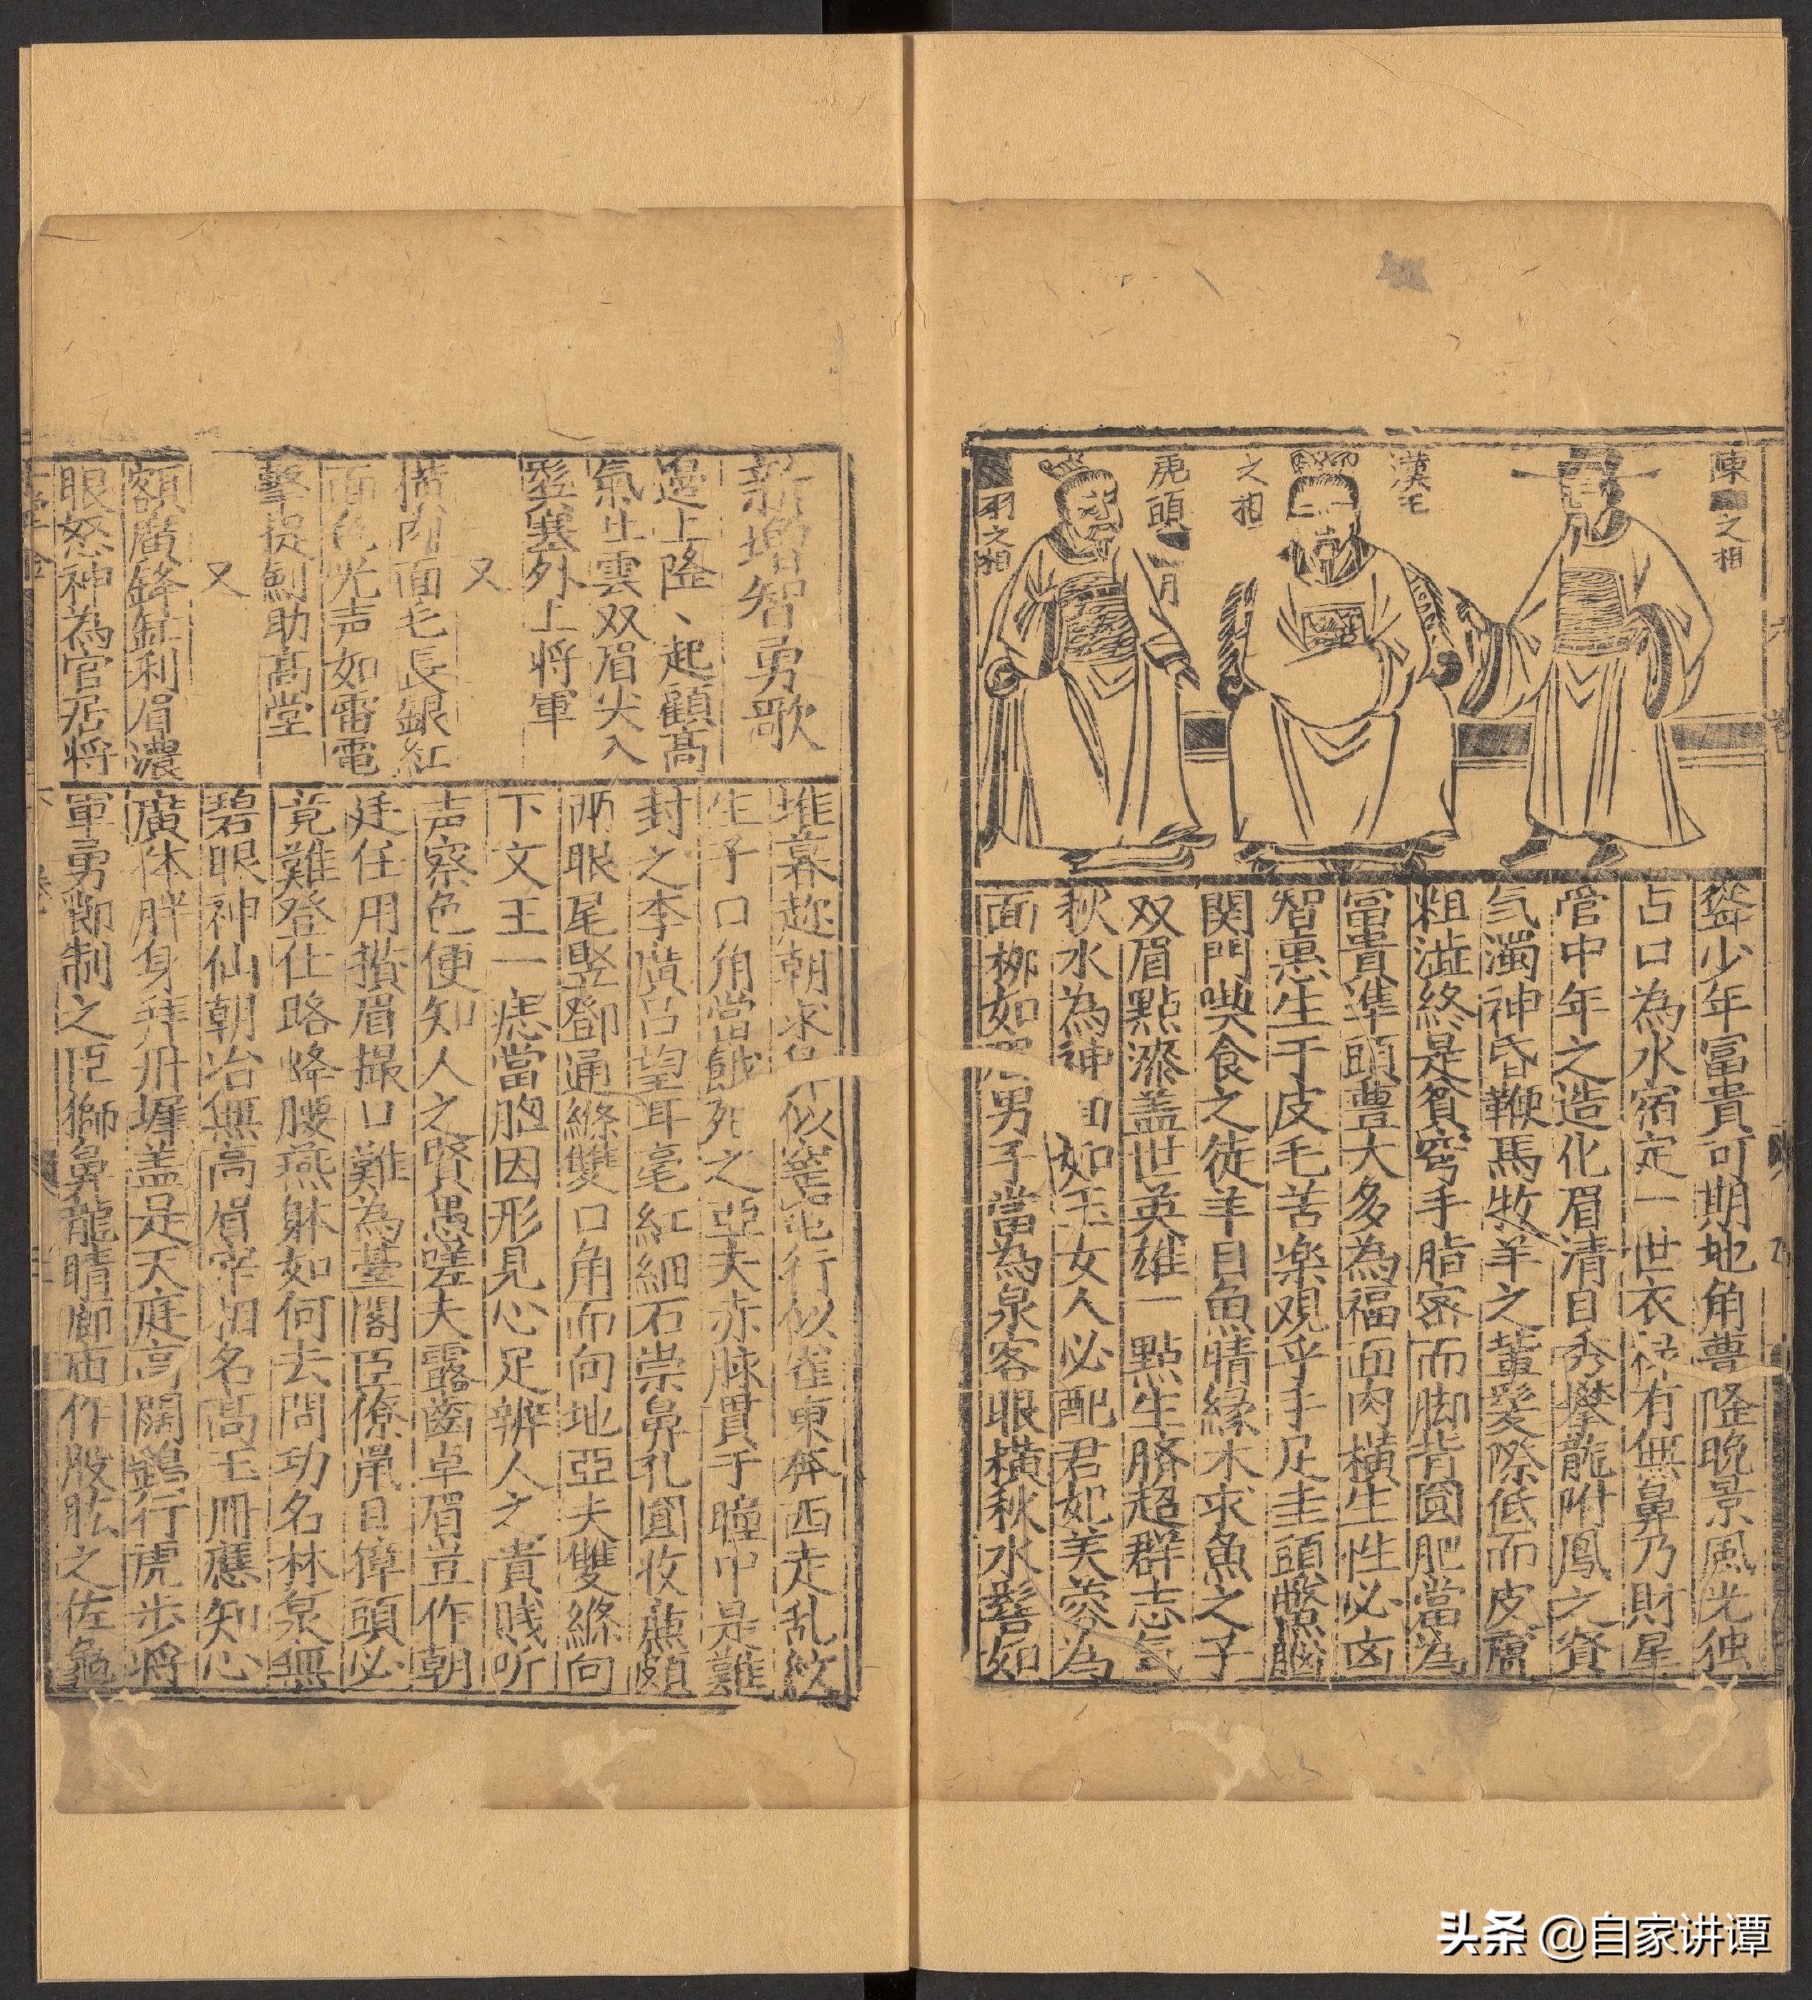 陳
之相
漢王
之相
虎頭
月
羽之相
聳少年富貴可期地角豊隆晚景風光独
占口為水宿定一世衣禄有無鼻乃財星
管中年之造化眉清目秀攀龍附鳳之資
氣濁神昏鞭馬牧羊之輩髮際低而皮膚
粗澁終是貧窮手脂密而脚背圓肥當為
富貴準頭豊大多為福面肉横生性必凶
智惠生于皮毛苦楽观乎手足圭頭鱉腦
関門喫食之徒羊目魚睛緣木求魚之子
双眉點漆盖世英雄一點生臍超群志气
秋水為神 如玉女人必配君妃芙蓉為
面栁如 男子當為泉客眼橫秋水鬂如
堆暮趂朝求 似窓 行似雀東奔西走乱紋
生子口角當餓死之亞夫赤脉貫于瞳中是難
封之李廣吕望耳毫紅細石崇鼻孔圓收蕉頗
兩眼尾竪鄧通縧雙口角而向地亞夫雙縧向
下文王一痣當胸因形見心足辨人之貴賎听
声察色便知人之賢愚嗟夫露齒卓眉豈作朝
廷任用攅眉撮口難為臺閣臣僚鼠目獐頭必
竟難登仕路蜂腰燕躰如何去問功名林泉無
碧眼神仙朝冶無高眉宰相名高玉冊應知心
廣体胖身拜丹墀盖是天庭高闊鵝行虎步將
軍勇邸制之臣獅鼻龍睛廊庙作股肱之佐龜
新增智勇歌
邉上隆丶起顧高
氣生雲双眉尖入
髮塞外上将軍
又
横肉面毛長銀紅
面色光声如雷電
擊提劍助高堂
又
額廣鋒 利眉濃
眼怒神為官居将
头条 @自家讲谭